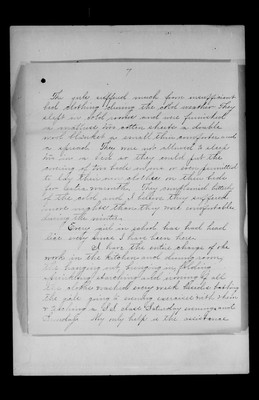 7
The girls suffered much from insufficient
bed clothing during the cold weather. They
slept in cold rooms and were furnished
a mattress two cotton sheets a double
wool blanket a small thin comforter and
a spread. They were not allowed to sleep
two in a bed so they could put the
covering of two beds in one or even permitted
to lay their own clothes on their beds
for extra warmth. They complained bitterly
of the cold and I believe they suffered
more or less than they were comfortable
during the winter.
Every girl in school has had head
lice ever since I have been here.
I have the entire charge of the
work in the kitchen and dining room,
the hanging out, bringing in, folding
sprinkling starching and ironing of all
the clothes washed every week besides bathing
the girls going to evening exercises with them
& teaching a S.S. class Saturday evenings and
Sundays. My only help is the assistance